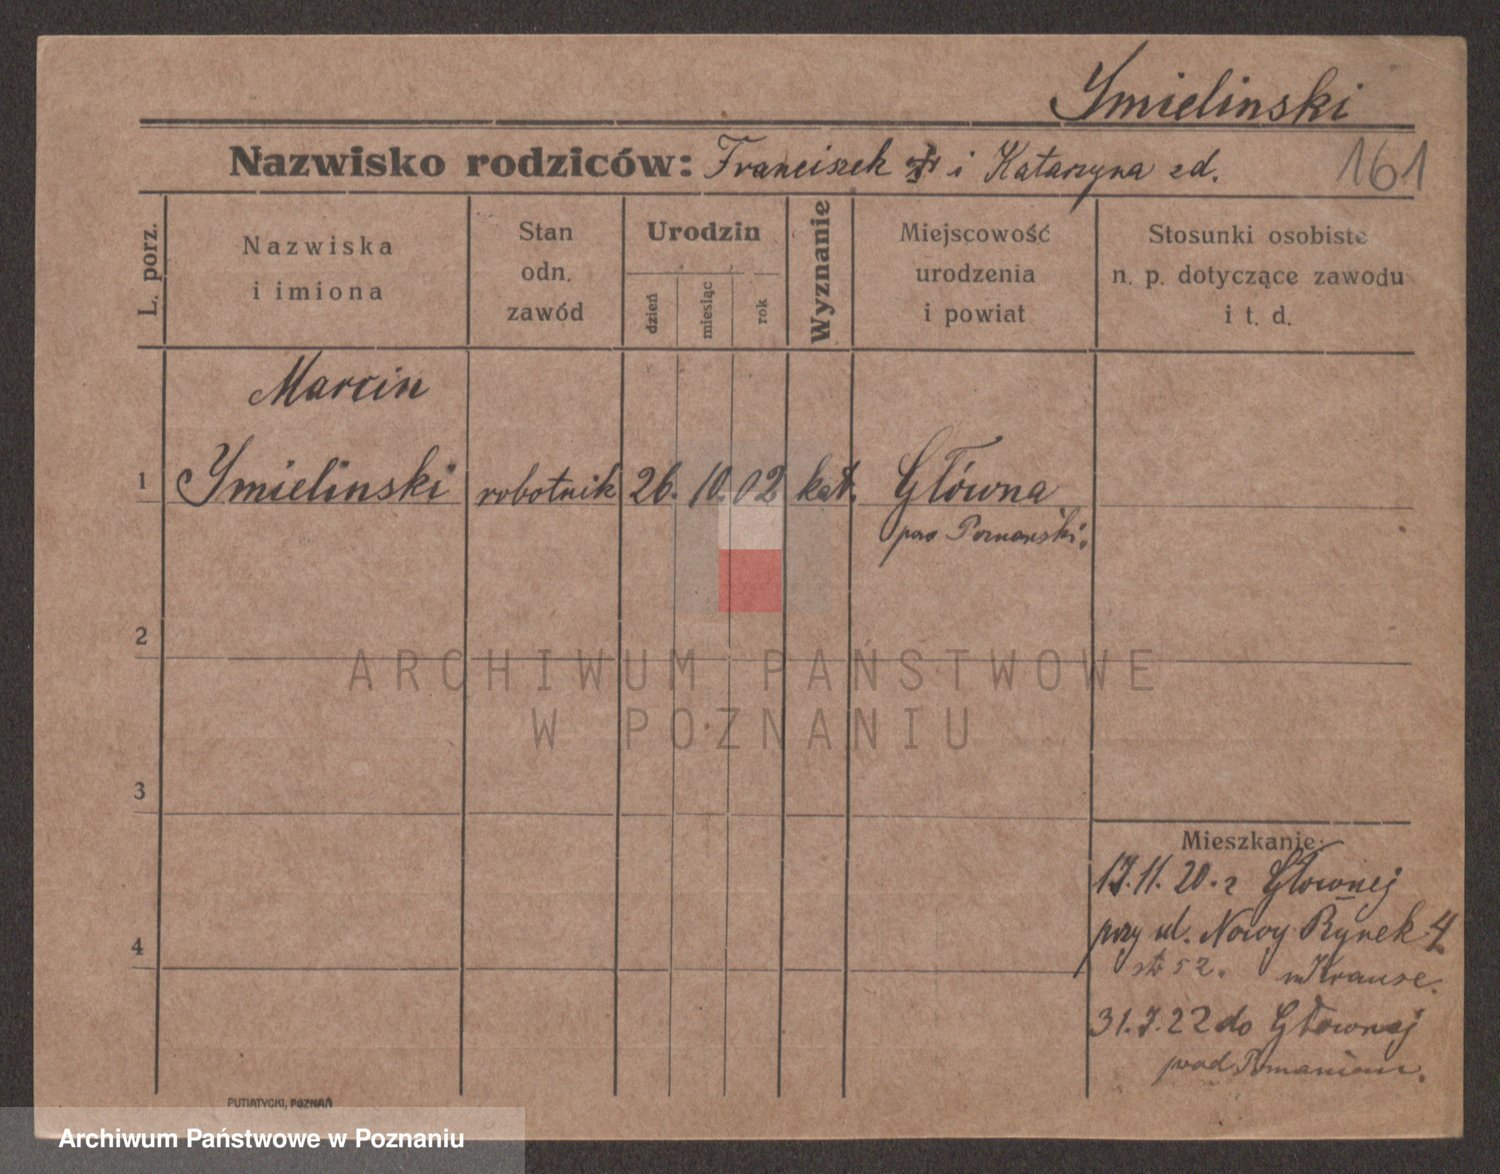 Ymielinski
Nazwisko rodziców: Franciszek i Katarzyna zd.
161
L. porz.
Nazwiska
i imiona
Stan
odn.
zawód
Urodzin
dzień
miesiąc
rok
Wyznanie
Miejscowość
urodzenia
i powiat
Stosunki osobiste
n. p. dotyczące zawodu
i t. d.
Marcin
1 Ymielinski robotnik 26. 10. 02 kat. Główna
pow Poznański.
2
ARCHIWUM PAŃSTWOWE
W POZNANIU
3
4
Mieszkanie:
17.11.20. z Głownej
przy ul. Nowy Rynek 4
52. Krause.
31.7.22 do Głownej
pod Poznaniem.
PUTIATYCKI, POZNAŃ
Archiwum Państwowe w Poznaniu